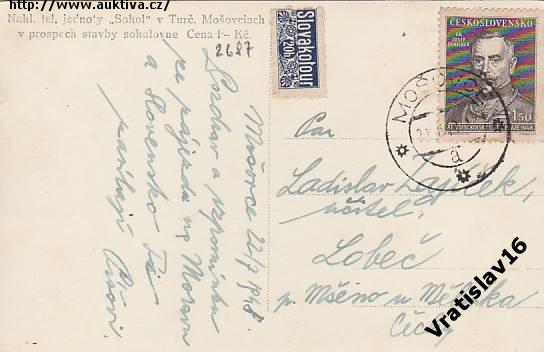 http://www.auktiva.cz/
Nakl. tel. jednoty „Sokol" v Turč. Mošovciach
v prospech stavby sokolovne Cena 1·– Kčs.
2687
Slovakotour
20h
ČESKOSLOVENSKO
1·50
MOŠOVCE
a
Mošovce 22/7 1948.
Pozdrav a vzpomínku
po zájezdu na Moravu
a Slovensko Tě
Pan
Ladislav Zajíček,
učitel,
Lobeč
p. Mšeno u Mělníka
Čechy
Vratislav16